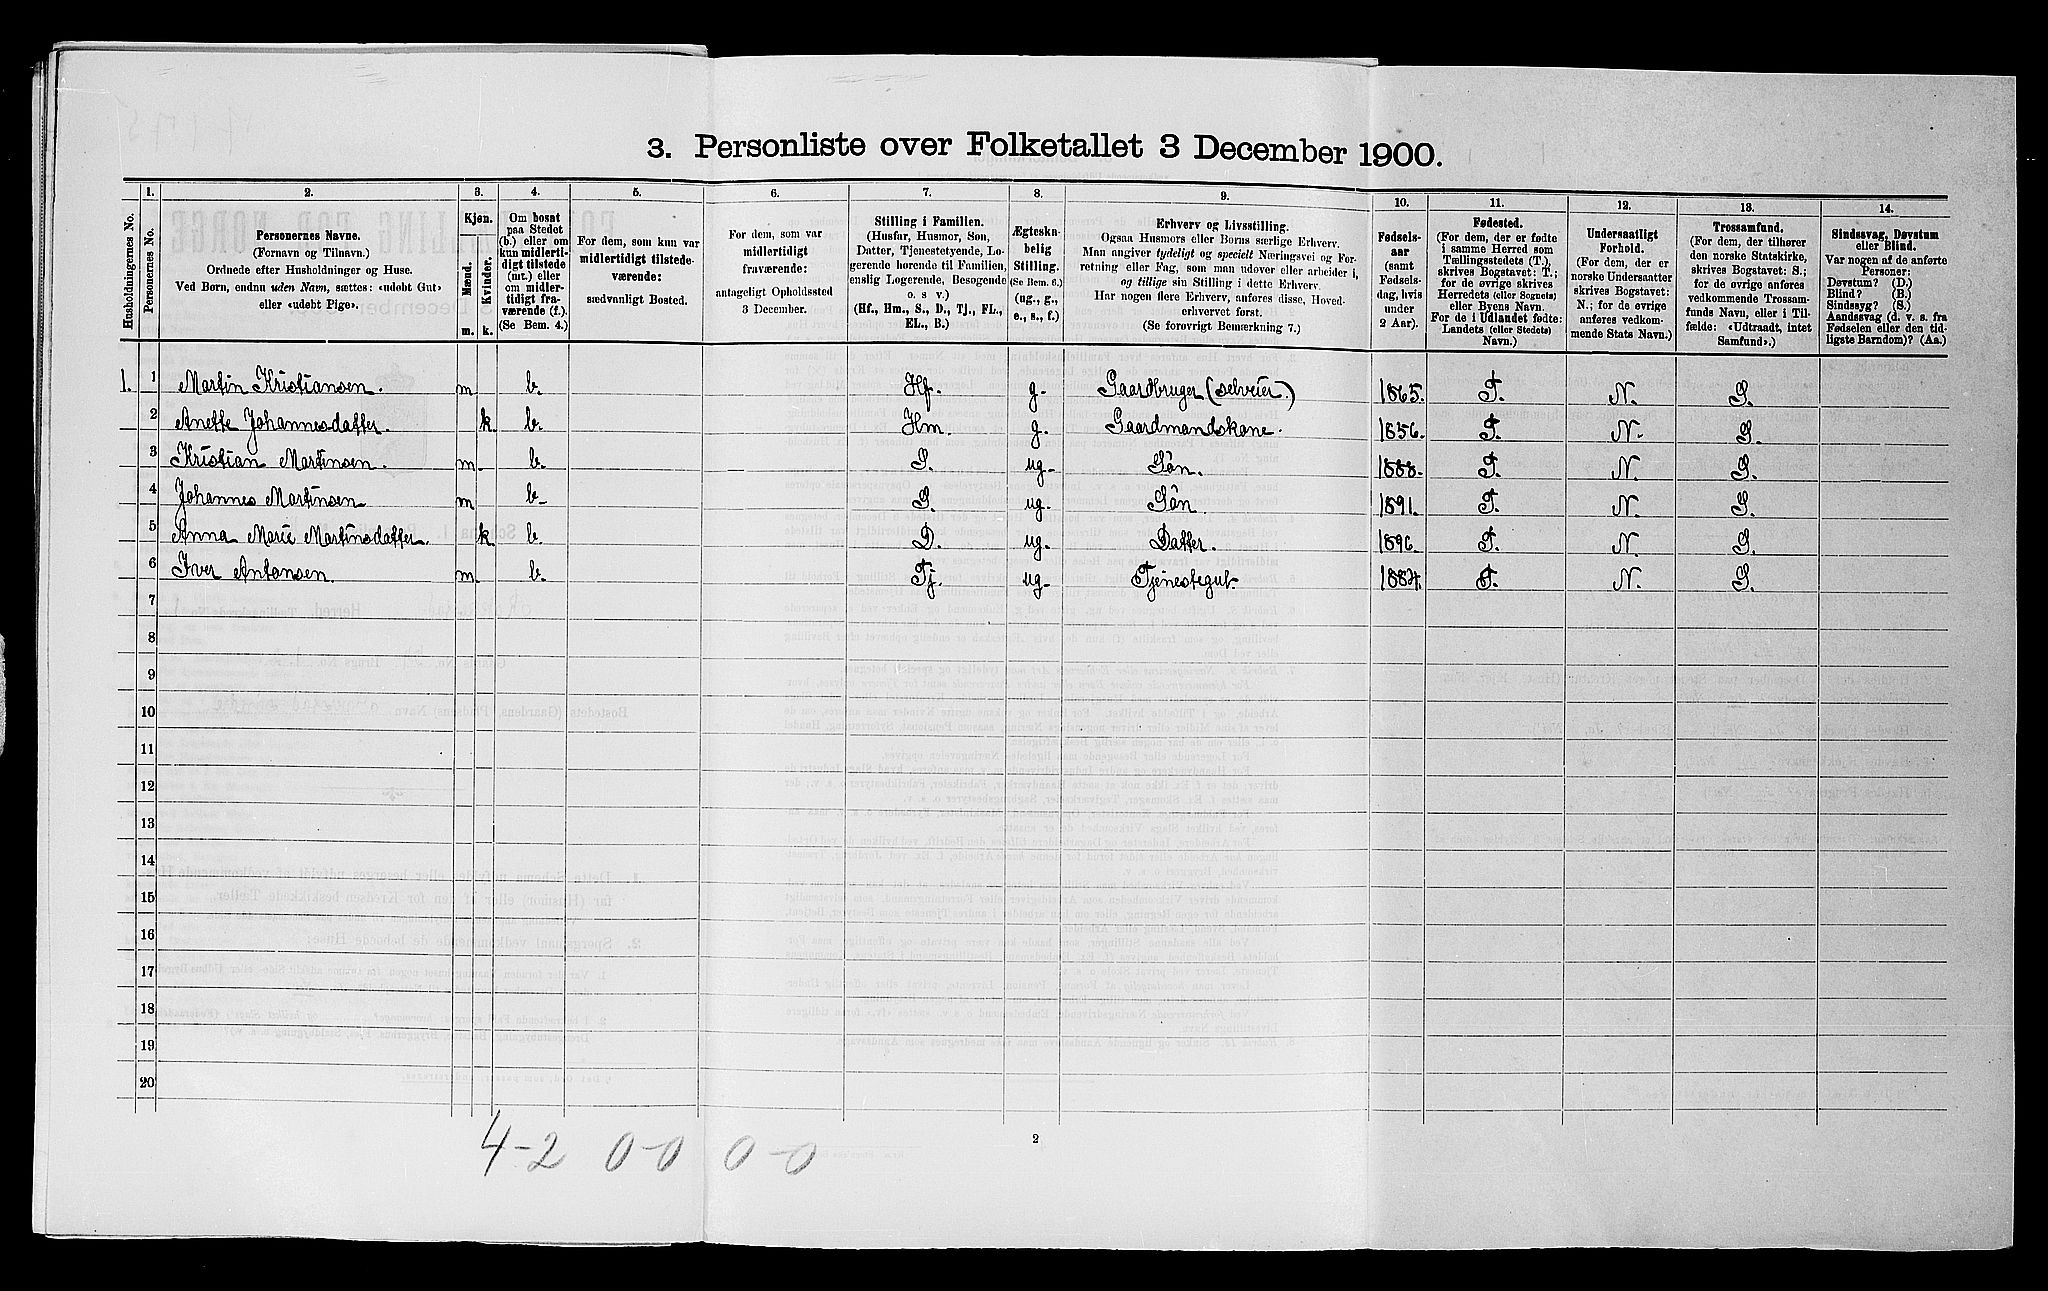 3. Personliste over Folketallet 3 December 1900.
Husholdningernes No.
1. Personernes No.
2. Personernes Navne.
(Fornavn og Tilnavn.)
Ordnede efter Husholdninger og Huse.
Ved Børn, endnu uden Navn, sættes: «udøbt Gut»
eller «udøbt Pige».
3. Kjøn.
Mænd. Kvinder.
m. k.
4. Om bosat
paa Stedet
(b.) eller om
kun midlerti-
digt tilstede
(mt.) eller
om midler-
tidigt fra-
værende (f.).
(Se Bem. 4.)
5. For dem, som kun var
midlertidigt tilstede-
værende:
sædvanligt Bosted.
6. For dem, som var
midlertidigt
fraværende:
antageligt Opholdssted
3 December.
7. Stilling i Familien.
(Husfar, Husmor, Søn,
Datter, Tjenestetyende, Lo-
gerende hørende til Familien,
enslig Logerende, Besøgende
o. s. v.)
(Hf., Hm., S., D., Tj., FL.,
EL., B.)
8. Ægteska-
belig
Stilling.
(Se Bem. 6.)
(ug., g.,
e., s., f.)
9. Erhverv og Livsstilling.
Ogsaa Husmors eller Børns særlige Erhverv.
Man angiver tydeligt og specielt Næringsvei og For-
retning eller Fag, som man udøver eller arbeider i,
og tillige sin Stilling i dette Erhverv.
Har nogen flere Erhverv, anføres disse, Hoved-
erhvervet først.
(Se forøvrigt Bemærkning 7.)
10. Fødsels-
aar
(samt
Fødsels-
dag, hvis
under
2 Aar).
11. Fødested.
(For dem, der er fødte
i samme Herred som
Tællingsstedets (T.),
skrives Bogstavet: T.;
for de øvrige skrives
Herredets (eller Sognets)
eller Byens Navn.
For de i Udlandet fødte:
Landets (eller Stedets)
Navn.)
12. Undersaatligt
Forhold.
(For dem, der er
norske Undersaatter
skrives Bogstavet:
N.; for de øvrige
anføres vedkom-
mende Stats Navn.)
13. Trossamfund.
(For dem, der tilhører
den norske Statskirke,
skrives Bogstavet: S.;
for de øvrige anføres
vedkommende Trossam-
funds Navn, eller i Til-
fælde: «Udtraadt, intet
Samfund».)
14. Sindssvag, Døvstum
eller Blind.
Var nogen af de anførte
Personer:
Døvstum? (D.)
Blind? (B.)
Sindssyg? (S.)
Aandssvag (d. v. s. fra
Fødselen eller den tid-
ligste Barndom)? (Aa.)
1. 1 Martin Kristiansen. m b. Hf. g. Gaardbruger (selveier.) 1865. T. N. S.
2 Anette Johannesdatter. k. b. Hm. g. Gaardmandskone. 1856. T. N. S.
3 Kristian Martinsen. m b. S. ug. Sön. 1888. T. N. S.
4 Johannes Martinsen m b. S. ug. Sön. 1891. T. N. S.
5 Anna Marie Martinsdatter. k. b. D. ug. Datter. 1896. T. N. S.
6 Iver Antonsen. m. b. Tj. ug. Tjenestegut. 1884. T. N. S.
7
8
9
10
11
12
13
14
15
16
17
18
19
20
4-2 0-0 0-0
2